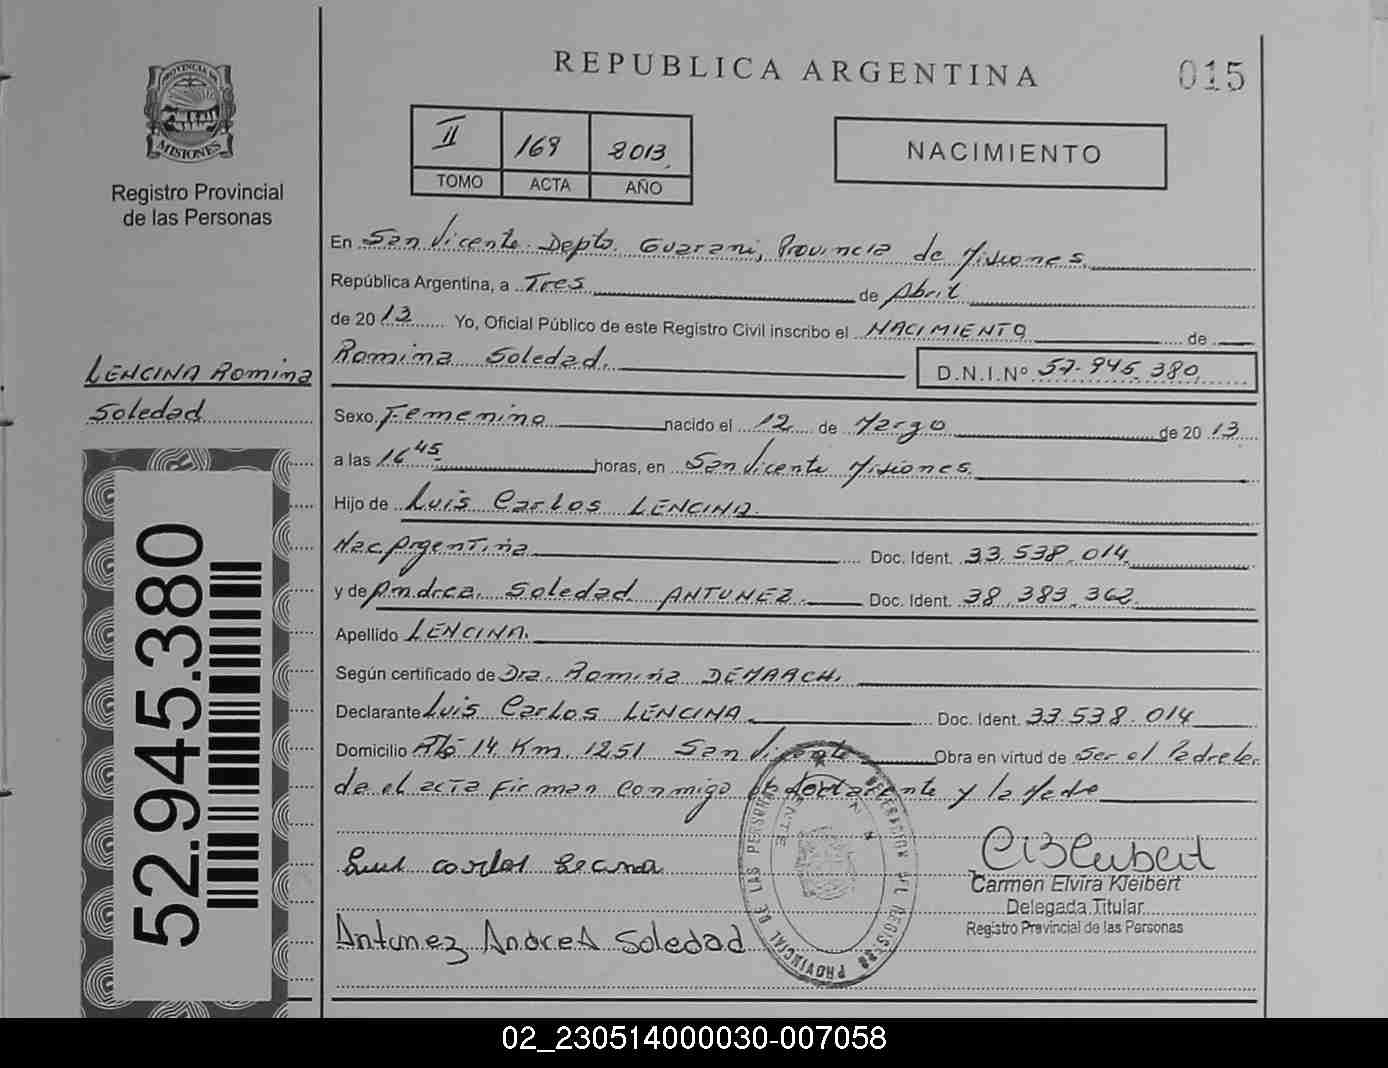 REPUBLICA ARGENTINA
015
PROVINCIA DE
MISIONES
Registro Provincial
de las Personas
II 169 2013
TOMO ACTA AÑO
NACIMIENTO
En San Vicente Depto. Guarani, Provincia de Misiones
República Argentina, a Tres de Abril
de 2013 Yo, Oficial Público de este Registro Civil inscribo el NACIMIENTO de
Romina Soledad. D.N.I.Nº 52.945.380
LENCINA Romina
Soledad
Sexo Femenino nacido el 12 de Marzo de 2013
a las 16 45 horas, en San Vicente Misiones
Hijo de Luis Carlos LENCINA
Nac. Argentina Doc. Ident. 33.538.014
y de Andrea Soledad ANTUNEZ Doc. Ident. 38.383.362
Apellido LENCINA
Según certificado de Dra. Romina DEMARCHI
Declarante Luis Carlos LENCINA Doc. Ident. 33.538.014
Domicilio Rta 14 Km. 1251 San Vicente Obra en virtud de Ser el Padre Lei
da el acta firman conmigo el declarante y la Madre
52.945.380
Carmen Elvira Kleibert
Delegada Titular
Registro Provincial de las Personas
Antunez Andrea Soledad
PROVINCIAL DE LAS PERSONAS
02_230514000030-007058